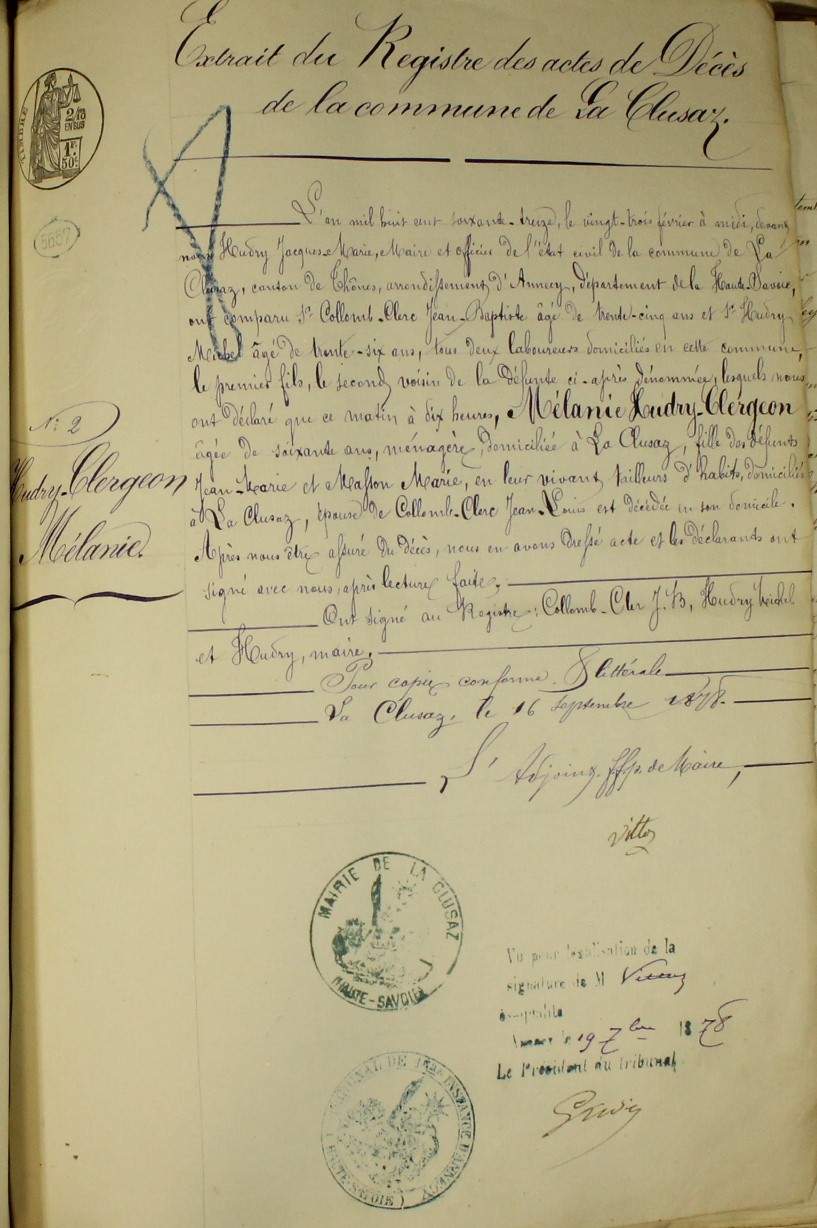 Extrait du Registre des actes de Décès
de la commune de La Clusaz.
TIMBRE
2/10
EN SUS
1F
50c
5687
L'an mil huit cent soixante-treize, le vingt-trois février à midi, devant
nous Hudry Jacques-Marie, Maire et officier de l'état civil de la commune de La
Clusaz, canton de Thônes, arrondissement d'Annecy, département de la Haute-Savoie,
ont comparu Sr Collomb-Clerc Jean-Baptiste âgé de trente-cinq ans et Sr Hudry
Michel âgé de trente-six ans, tous deux laboureurs domiciliés en cette commune,
le premier fils, le second voisin de la défunte ci-après dénommée, lesquels nous
ont déclaré que ce matin à dix heures, Mélanie Hudry-Clergeon
âgée de soixante ans, ménagère, domiciliée à La Clusaz, fille des défunts
Jean-Marie et Masson Marie, en leur vivant tailleurs d'habits, domiciliés
à La Clusaz, épouse de Collomb-Clerc Jean-Louis est décédée en son domicile.
Après nous être assuré du décès, nous en avons dressé acte et les déclarants ont
signé avec nous, après lecture faite.
Ont signé au Registre: Collomb-Cler J. B, Hudry Michel
et Hudry, maire.
N: 2
Hudry-Clergeon
Mélanie.
Pour copie conforme & littérale
La Clusaz, le 16 septembre 1878.
L'Adjoint ffn de Maire,
Vittoz
MAIRIE DE LA CLUSAZ
HAUTE-SAVOIE
Vu pour légalisation de la
signature de M Vittoz
Annecy le 19 7bre 1878
Le Président du tribunal
TRIBUNAL DE 1ERE INSTANCE D'ANNECY
(HTE SAVOIE)